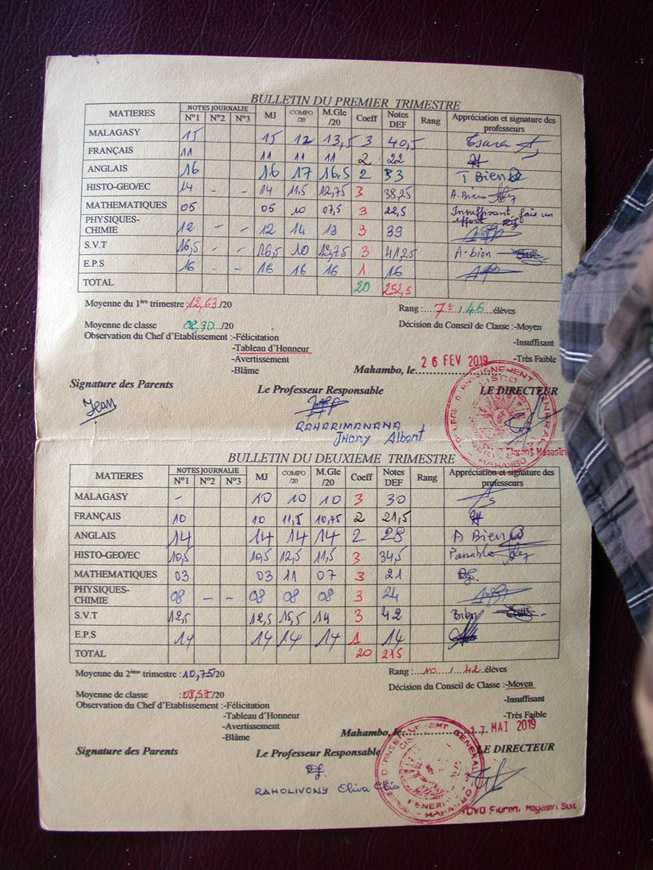 BULLETIN DU PREMIER TRIMESTRE
MATIERES NOTES JOURNALIE N°1 N°2 N°3 MJ COMPO /20 M.Gle /20 Coeff Notes DEF Rang Appréciation et signature des professeurs
MALAGASY 15 15 12 13,5 3 40,5 Tsara
FRANÇAIS 11 11 11 11 2 22
ANGLAIS 16 16 17 16,5 2 33 T Bien
HISTO-GEO/EC 14 - - 14 11,5 12,75 3 38,25 A. Bien
MATHEMATIQUES 05 05 10 07,5 3 22,5 Insuffisant, fais un effort
PHYSIQUES-CHIMIE 12 - - 12 14 13 3 39
S.V.T 16,5 - - 16,5 10 13,75 3 41,25 A. bien
E.P.S 16 - - 16 16 16 1 16
TOTAL 20 252,5
Moyenne du 1ère trimestre :12,63/20 Rang : 7è / 46 élèves
Moyenne de classe /20 Décision du Conseil de Classe :-Moyen
Observation du Chef d'Etablissement :-Félicitation -Insuffisant
-Tableau d'Honneur -Très Faible
-Avertissement
-Blâme Mahambo, le 26 FEV 2019
Signature des Parents Le Professeur Responsable LE DIRECTEUR
Jean
RAHARIMANANA
Jhony Albert
BULLETIN DU DEUXIEME TRIMESTRE
MATIERES NOTES JOURNALIE N°1 N°2 N°3 MJ COMPO /20 M.Gle /20 Coeff Notes DEF Rang Appréciation et signature des professeurs
MALAGASY - 10 10 10 3 30
FRANÇAIS 10 10 11,5 10,75 2 21,5
ANGLAIS 14 14 14 14 2 28 A Bien
HISTO-GEO/EC 10,5 10,5 12,5 11,5 3 34,5 Passable
MATHEMATIQUES 03 03 11 07 3 21
PHYSIQUES-CHIMIE 08 - - 08 08 08 3 24
S.V.T 12,5 12,5 15,5 14 3 42 Bien
E.P.S 14 14 14 14 1 14
TOTAL 20 215
Moyenne du 2ème trimestre :10,75/20 Rang : 10 / 42 élèves
Moyenne de classe :08,57/20 Décision du Conseil de Classe :-Moyen
Observation du Chef d'Etablissement :-Félicitation -Insuffisant
-Tableau d'Honneur -Très Faible
-Avertissement
-Blâme Mahambo, le 17 MAI 2019
Signature des Parents Le Professeur Responsable LE DIRECTEUR
RAHOLIVONY Oliva